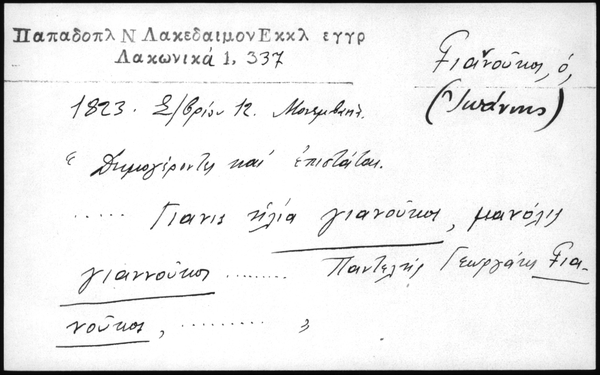 Παπαδοπλ Ν Λακεδαιμον Εκκλ εγγρ
Λακωνικά 1, 337
Γιανοῦκος, ὁ,
(Ἰωάννης)
1823. Σ/βρίου 12. Μονεμβασ.
« Δημογέροντες καί ἐπιστάται.
..... Γιανις ἠλία γιανοῦκος, μανόλις
γιαννοῦκος ....... Παντελῆς Γεωργάκις Για-
νοῦκος, ........ »